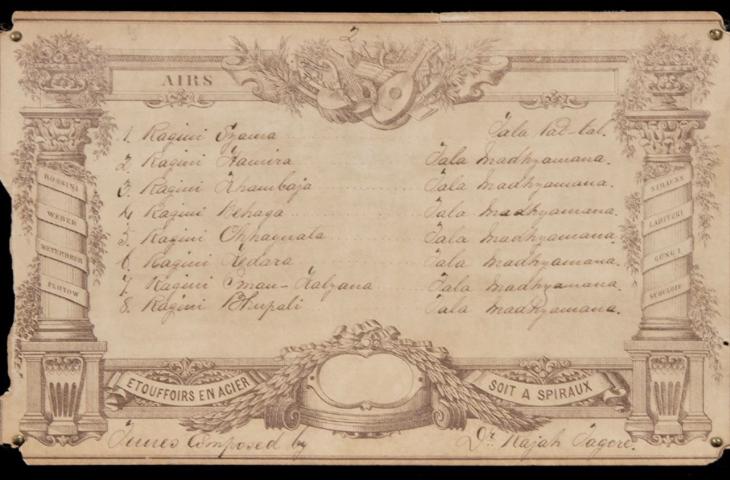 2
AIRS
1. Ragini Zyama Tala Pat-tal.
2. Ragini Hamira Tala Madhyamana.
3. Ragini Khambaja Tala Madhyamana.
4 Ragini Behaga Tala Madhyamana.
5. Ragini Tala Madhyamana.
6 Ragini Kedara Tala Madhyamana.
7 Ragini Iman-Kalyana Tala Madhyamana.
8. Ragini Bhupali Tala Madhyamana.
ROSSINI
WEBER
MEYERBEER
FLOTOW
STRAUSS
LABITZKI
GUNG'L
ETOUFFOIRS EN ACIER
SOIT A SPIRAUX
Tunes Composed by Dr. Rajah Tagore.